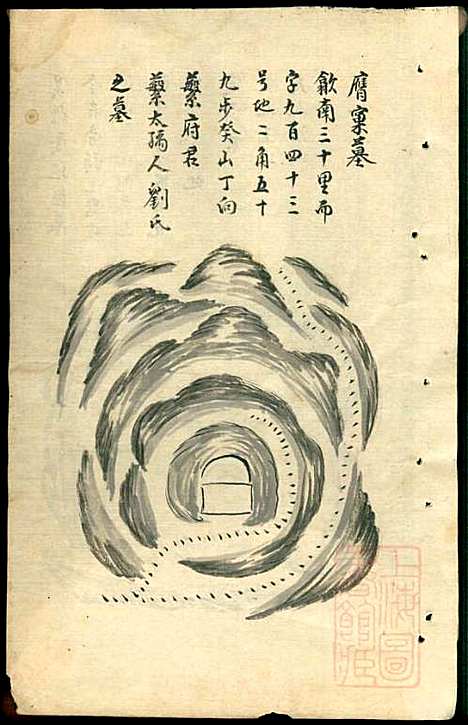 膺窠墓
歙南三十里而
字九百四十三
号地二角五十
九步癸山丁向
蔡府君
蔡太孺人劉氏
之墓
上海圖
書館